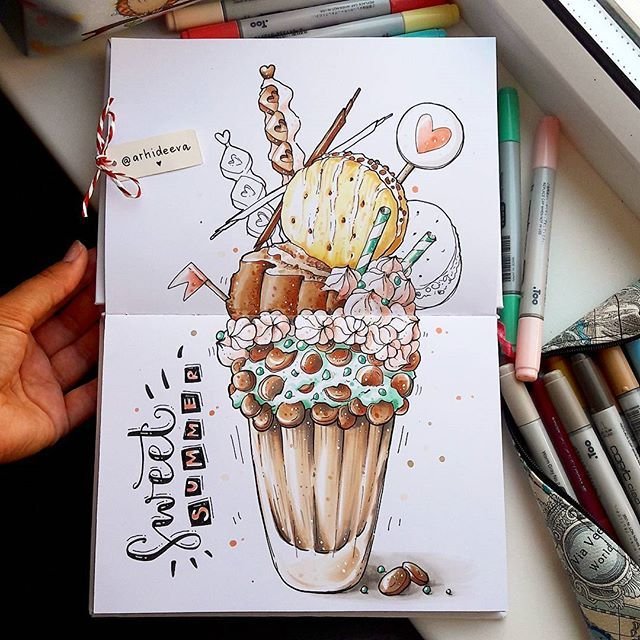 @arhideeva
Sweet
SUMMER
Too
Too
Too
Too
Too
copic
Via Ve
World